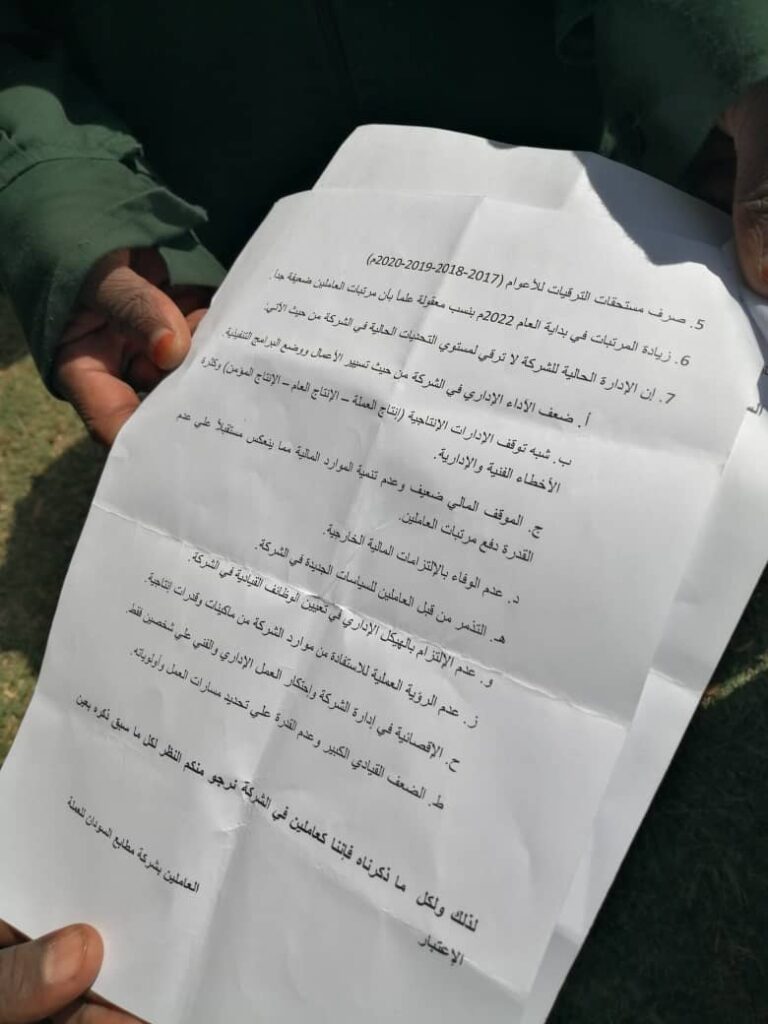 5. صرف مستحقات الترقيات للأعوام (2017-2018-2019-2020م)
6. زيادة المرتبات في بداية العام 2022م بنسب معقولة علماً بأن مرتبات العاملين ضعيفة جداً .
7. إن الإدارة الحالية للشركة لا ترقي لمستوي التحديات الحالية في الشركة من حيث الآتي:
أ. ضعف الأداء الإداري في الشركة من حيث تسيير الأعمال ووضع البرامج التنفيذية
ب. شبه توقف الإدارات الإنتاجية (إنتاج العملة – الإنتاج العام – الإنتاج المؤمن) وكثرة
الأخطاء الفنية والإدارية.
ج. الموقف المالي ضعيف وعدم تنمية الموارد المالية مما ينعكس مستقبلاً علي عدم
القدرة دفع مرتبات العاملين.
د. عدم الوفاء بالإلتزامات المالية الخارجية.
هـ. التذمر من قبل العاملين للسياسات الجديدة في الشركة.
و. عدم الإلتزام بالهيكل الإداري في تعيين الوظائف القيادية في الشركة.
ز. عدم الرؤية العملية للاستفادة من موارد الشركة من ماكينات وقدرات إنتاجية.
ح. الإقصائية في إدارة الشركة وإحتكار العمل الإداري والفني علي شخصين فقط.
ط. الضعف القيادي الكبير وعدم القدرة علي تحديد مسارات العمل وأولوياته.
لذلك ولكل ما ذكرناه فإننا كعاملين في الشركة نرجو منكم النظر لكل ما سبق ذكره بعين
الإعتبار
العاملين بشركة مطابع السودان للعملة